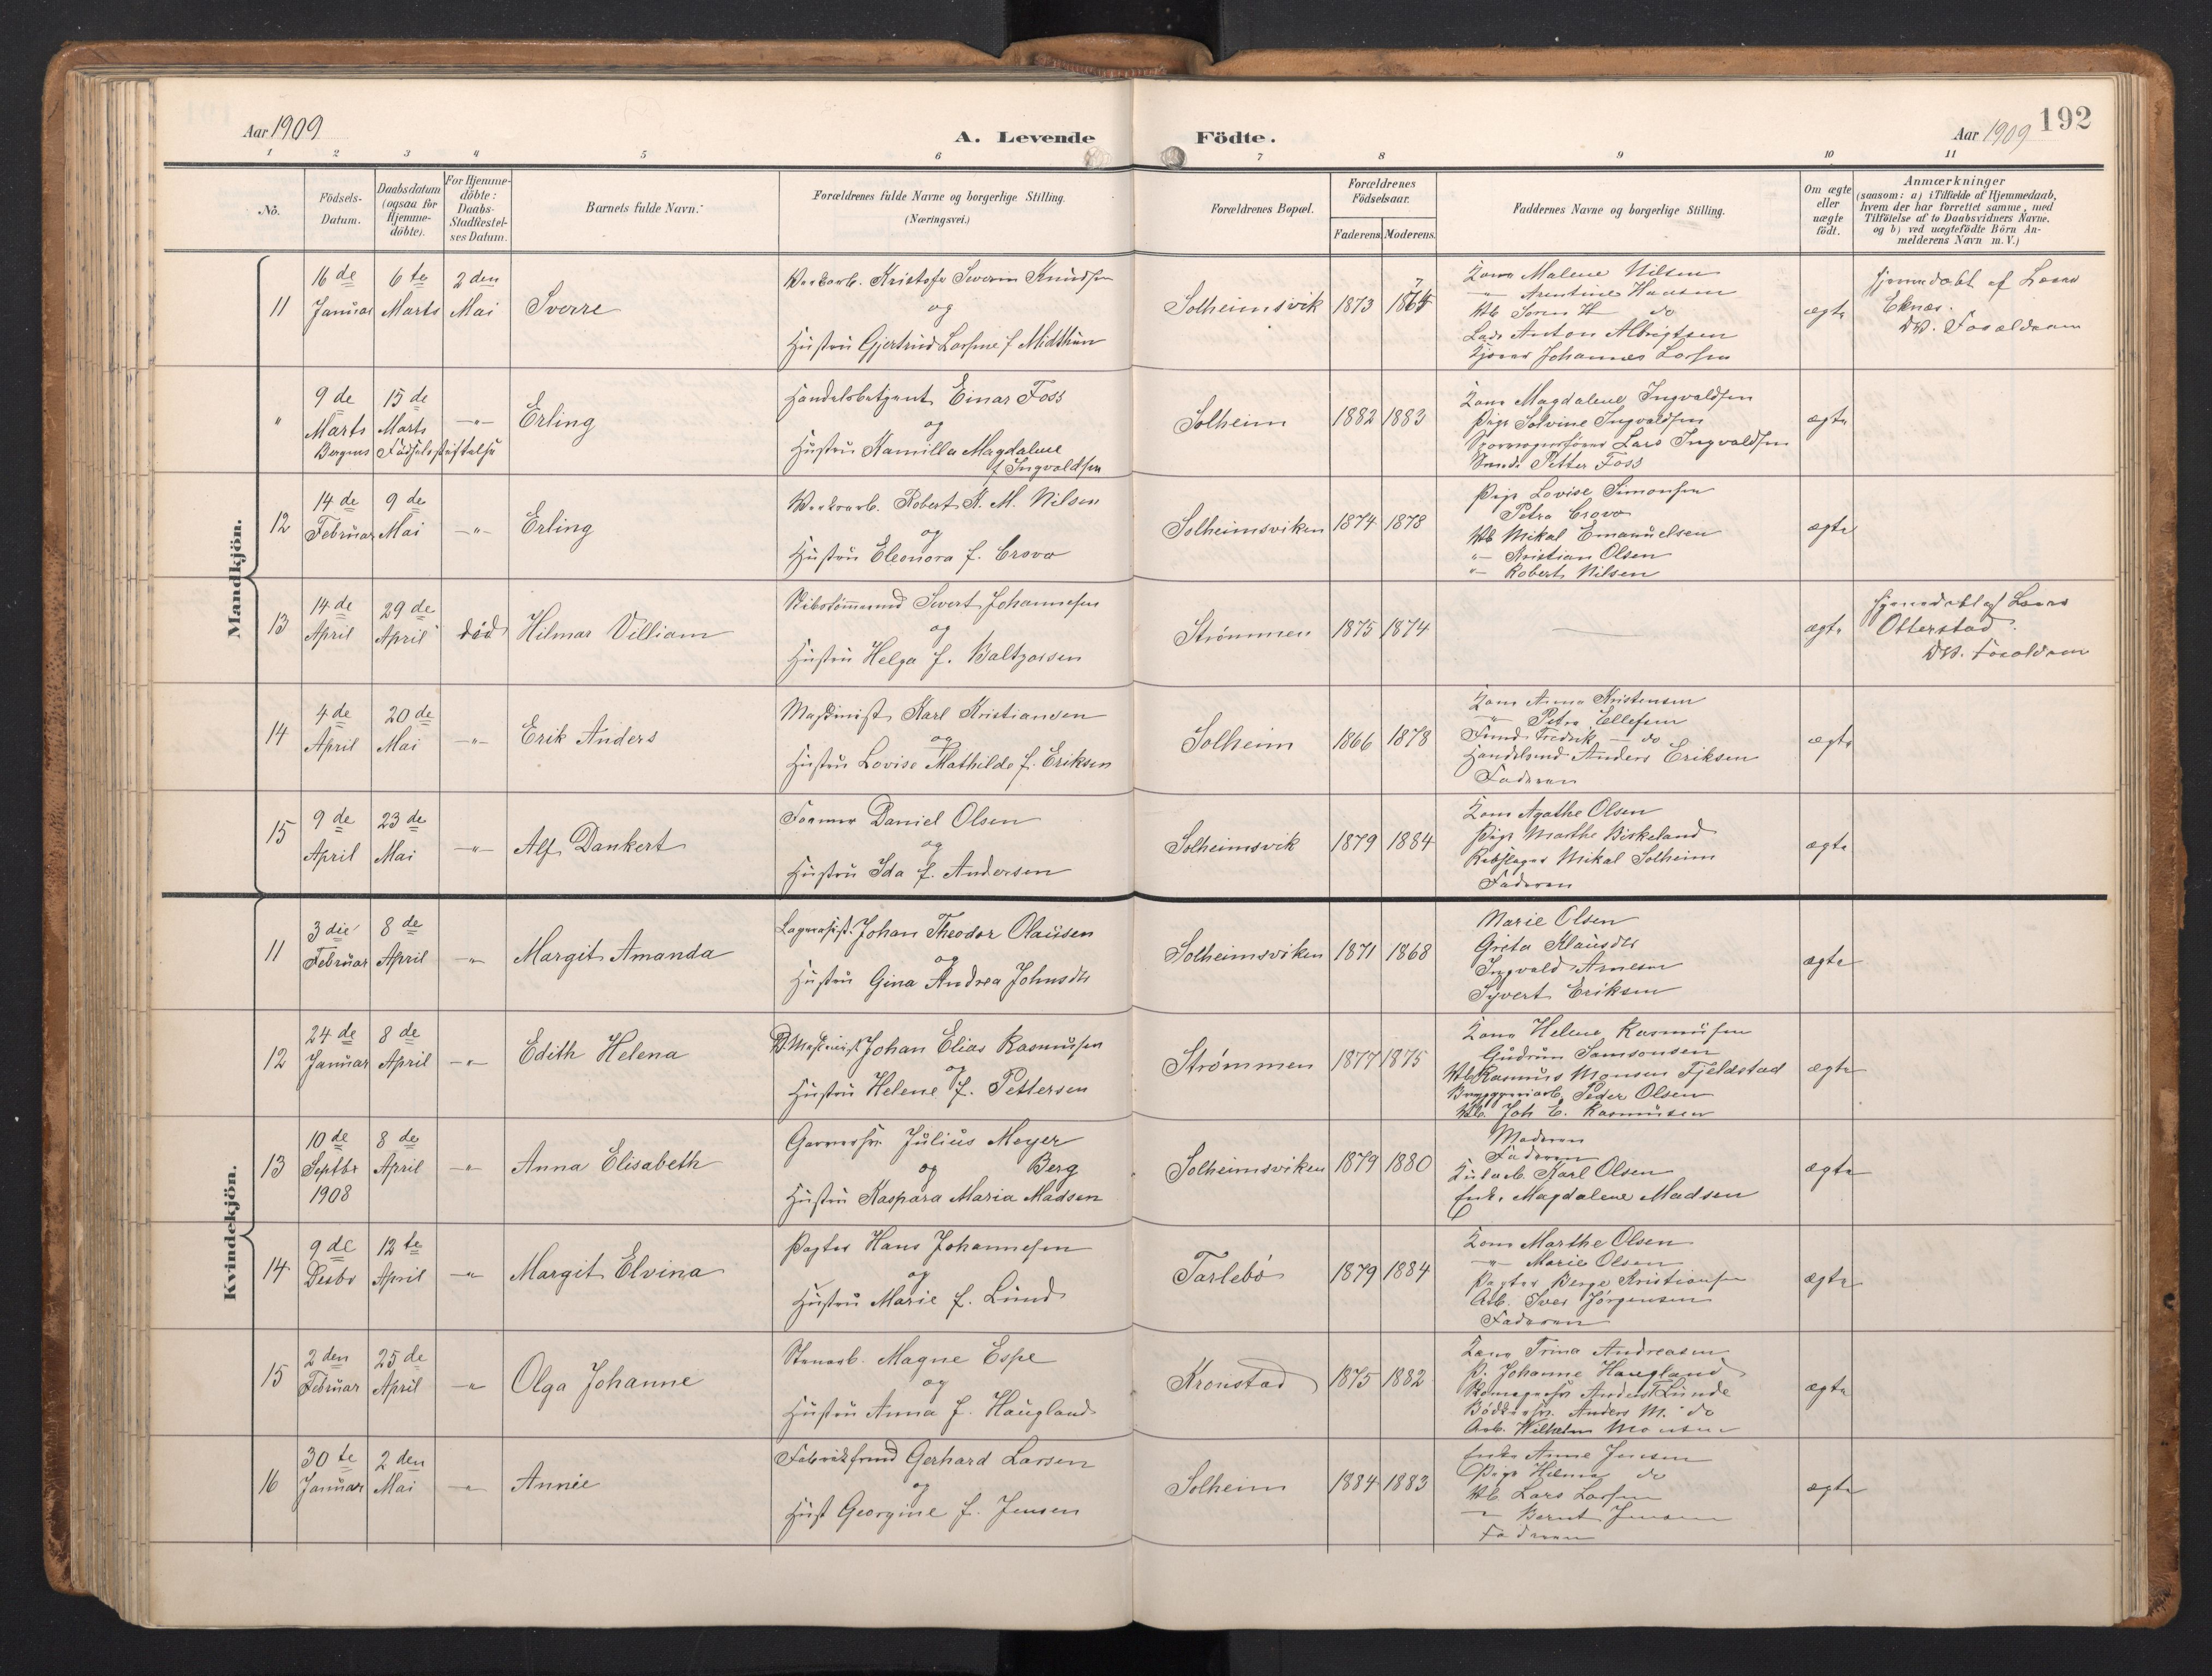 Aar 1909
A. Levende Födte.
Aar 1909
192
1 2 3 4 5 6 7 8 9 10 11
No.
Födsels-
Datum.
Daabsdatum
(ogsaa for
Hjemme-
döbte).
For Hjemme-
döbte:
Daabs-
Stadfæstel-
ses Datum.
Barnets fulde Navn.
Forældrenes fulde Navne og borgerlige Stilling.
(Næringsvei.)
Forældrenes Bopæl.
Forældrenes
Födselsaar.
Faderens. Moderens.
Faddernes Navne og borgerlige Stilling.
Om ægte
eller
uægte
födt.
Anmærkninger
(saasom: a) i Tilfælde af Hjemmedaab,
hvem der har forrettet samme, med
Tilföielse af to Daabsvidners Navne,
og b) ved uægtefödte Börn An-
melderens Navn m. V.)
Mandkjön.
11
16de
Januar
6te
Marts
2den
Mai
Sverre
Verksarb. Kristofer Severin Knudsen
og
Hustru Gjertrud Larsine f. Midthun
Solheimsvik
1873
Kone Malene Nilsen
" Arentine Hansen
Vb Søren H do
Lods Anton Albrigtsen
Johannes Larsen
ægte
Hjemmedøbt af Laura
Eknæs.
DV. Forældrene
"
9de
Marts
15de
Marts
-"-
Bergens Fødselsstiftelse
Erling
Handelsbetjent Einar Foss
og
Hustru Kamilla Magdalene
f. Ingvaldsen
Solheim
1882
1883
Kone Magdalene Ingvaldsen
Pige Solvine Ingvaldsen
Sporvognsfører Lars Ingvaldsen
Petter Foss
ægte
12
14de
Februar
9de
Mai
-"-
Erling
Verksarb. Robert K. M. Nilsen
og
Hustru Eleonora f. Crovo
Solheimsviken
1874
1878
Pige Lovise Simonsen
Petra Crovo
Vb Mikal Emanuelsen
"- Kristian Olsen
"- Robert Nilsen
ægte
13
14de
April
29de
April
død
Hilmar Villiam
Skibstømmermd Sivert Johannesen
og
Hustru Helga f. Baltzersen
Strømmen
1875
1874
ægte
Hjemmedøbt af Laura
Otterstad.
DV. Forældrene
14
4de
April
20de
Mai
-"-
Erik Anders
Maskinist Karl Kristiansen
og
Hustru Lovise Mathilde f. Eriksen
Solheim
1866
1878
Kone Anna Kristensen
" Petra Ellefsen
Fredrik - do
Handelsmd Anders Eriksen
Faderen
ægte
15
9de
April
23de
Mai
-"-
Alf Dankert
Former Daniel Olsen
og
Hustru Ida f. Andersen
Solheimsvik
1879
1884
Kone Agathe Olsen
Pige Marthe Birkeland
Rebslager Mikal Solheim
Faderen
ægte
Kvindekjön.
11
3die
Februar
8de
April
-"-
Margit Amanda
Johan Theodor Olausen
og
Hustru Gina Andrea Johnsdtr
Solheimsviken
1871
1868
Marie Olsen
Greta Klausdtr
Ingvald Arnesen
Syvert Eriksen
ægte
12
24de
Januar
8de
April
-"-
Edith Helena
D.Maskinist Johan Elias Rasmussen
og
Hustru Helene f. Pettersen
Strømmen
1877
1875
Kone Helene Rasmussen
Gudrun Samsonsen
Vb Rasmus Monsen Fjeldstad
Bryggeriarb. Peder Olsen
Vb. Joh E. Rasmussen
ægte
13
10de
Septbr
1908
8de
April
-"-
Anna Elisabeth
Garversv. Julius Meyer
og Berg
Hustru Kaspara Maria Madsen
Solheimsviken
1879
1880
Moderen
Faderen
Karl Olsen
Enke Magdalene Madsen
ægte
14
9de
Desbr
12te
April
-"-
Margit Elvina
Pagter Hans Johannesen
og
Hustru Marie f. Lund
Tarlebø
1879
1884
Kone Marthe Olsen
-"- Marie Olsen
Pagter Berge Kristiansen
Arb. Iver Jørgensen
Faderen
ægte
15
2den
Februar
25de
April
-"-
Olga Johanne
Stenarb. Magne Espe
og
Hustru Anna f. Haugland
Kronstad
1875
1882
Kone Trina Andreasen
P. Johanne Haugland
Anders Lunde
Bødkersv. Anders M. do
Arb. Wilhelm Monsen
ægte
16
30te
Januar
2den
Mai
-"-
Annie
Fabrikformd Gerhard Larsen
og
Hust Georgine f. Jensen
Solheim
1884
1883
Enke Anne Jensen
Pige Hilma do
Vb. Lars Larsen
" Bernt Jensen
Faderen
ægte